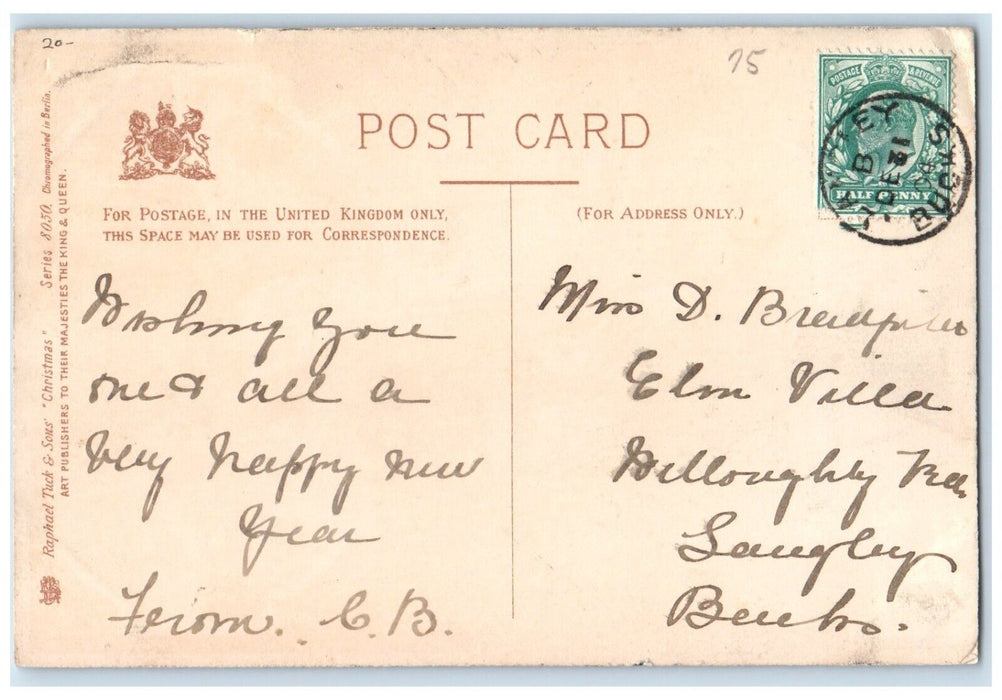 20-
75
POST CARD
POSTAGE & REVENUE
HALF PENNY
LEY
B
DE 31
BUCKS
FOR POSTAGE, IN THE UNITED KINGDOM ONLY,
THIS SPACE MAY BE USED FOR CORRESPONDENCE.
(FOR ADDRESS ONLY.)
Raphael Tuck & Sons' "Christmas" Series 8050. Chromographed in Berlin.
ART PUBLISHERS TO THEIR MAJESTIES THE KING & QUEEN.
Wishing you
one & all a
Very happy new
Year
From. C.B.
Miss D.
Elm Villa
Willoughby
Langley
Bucks.